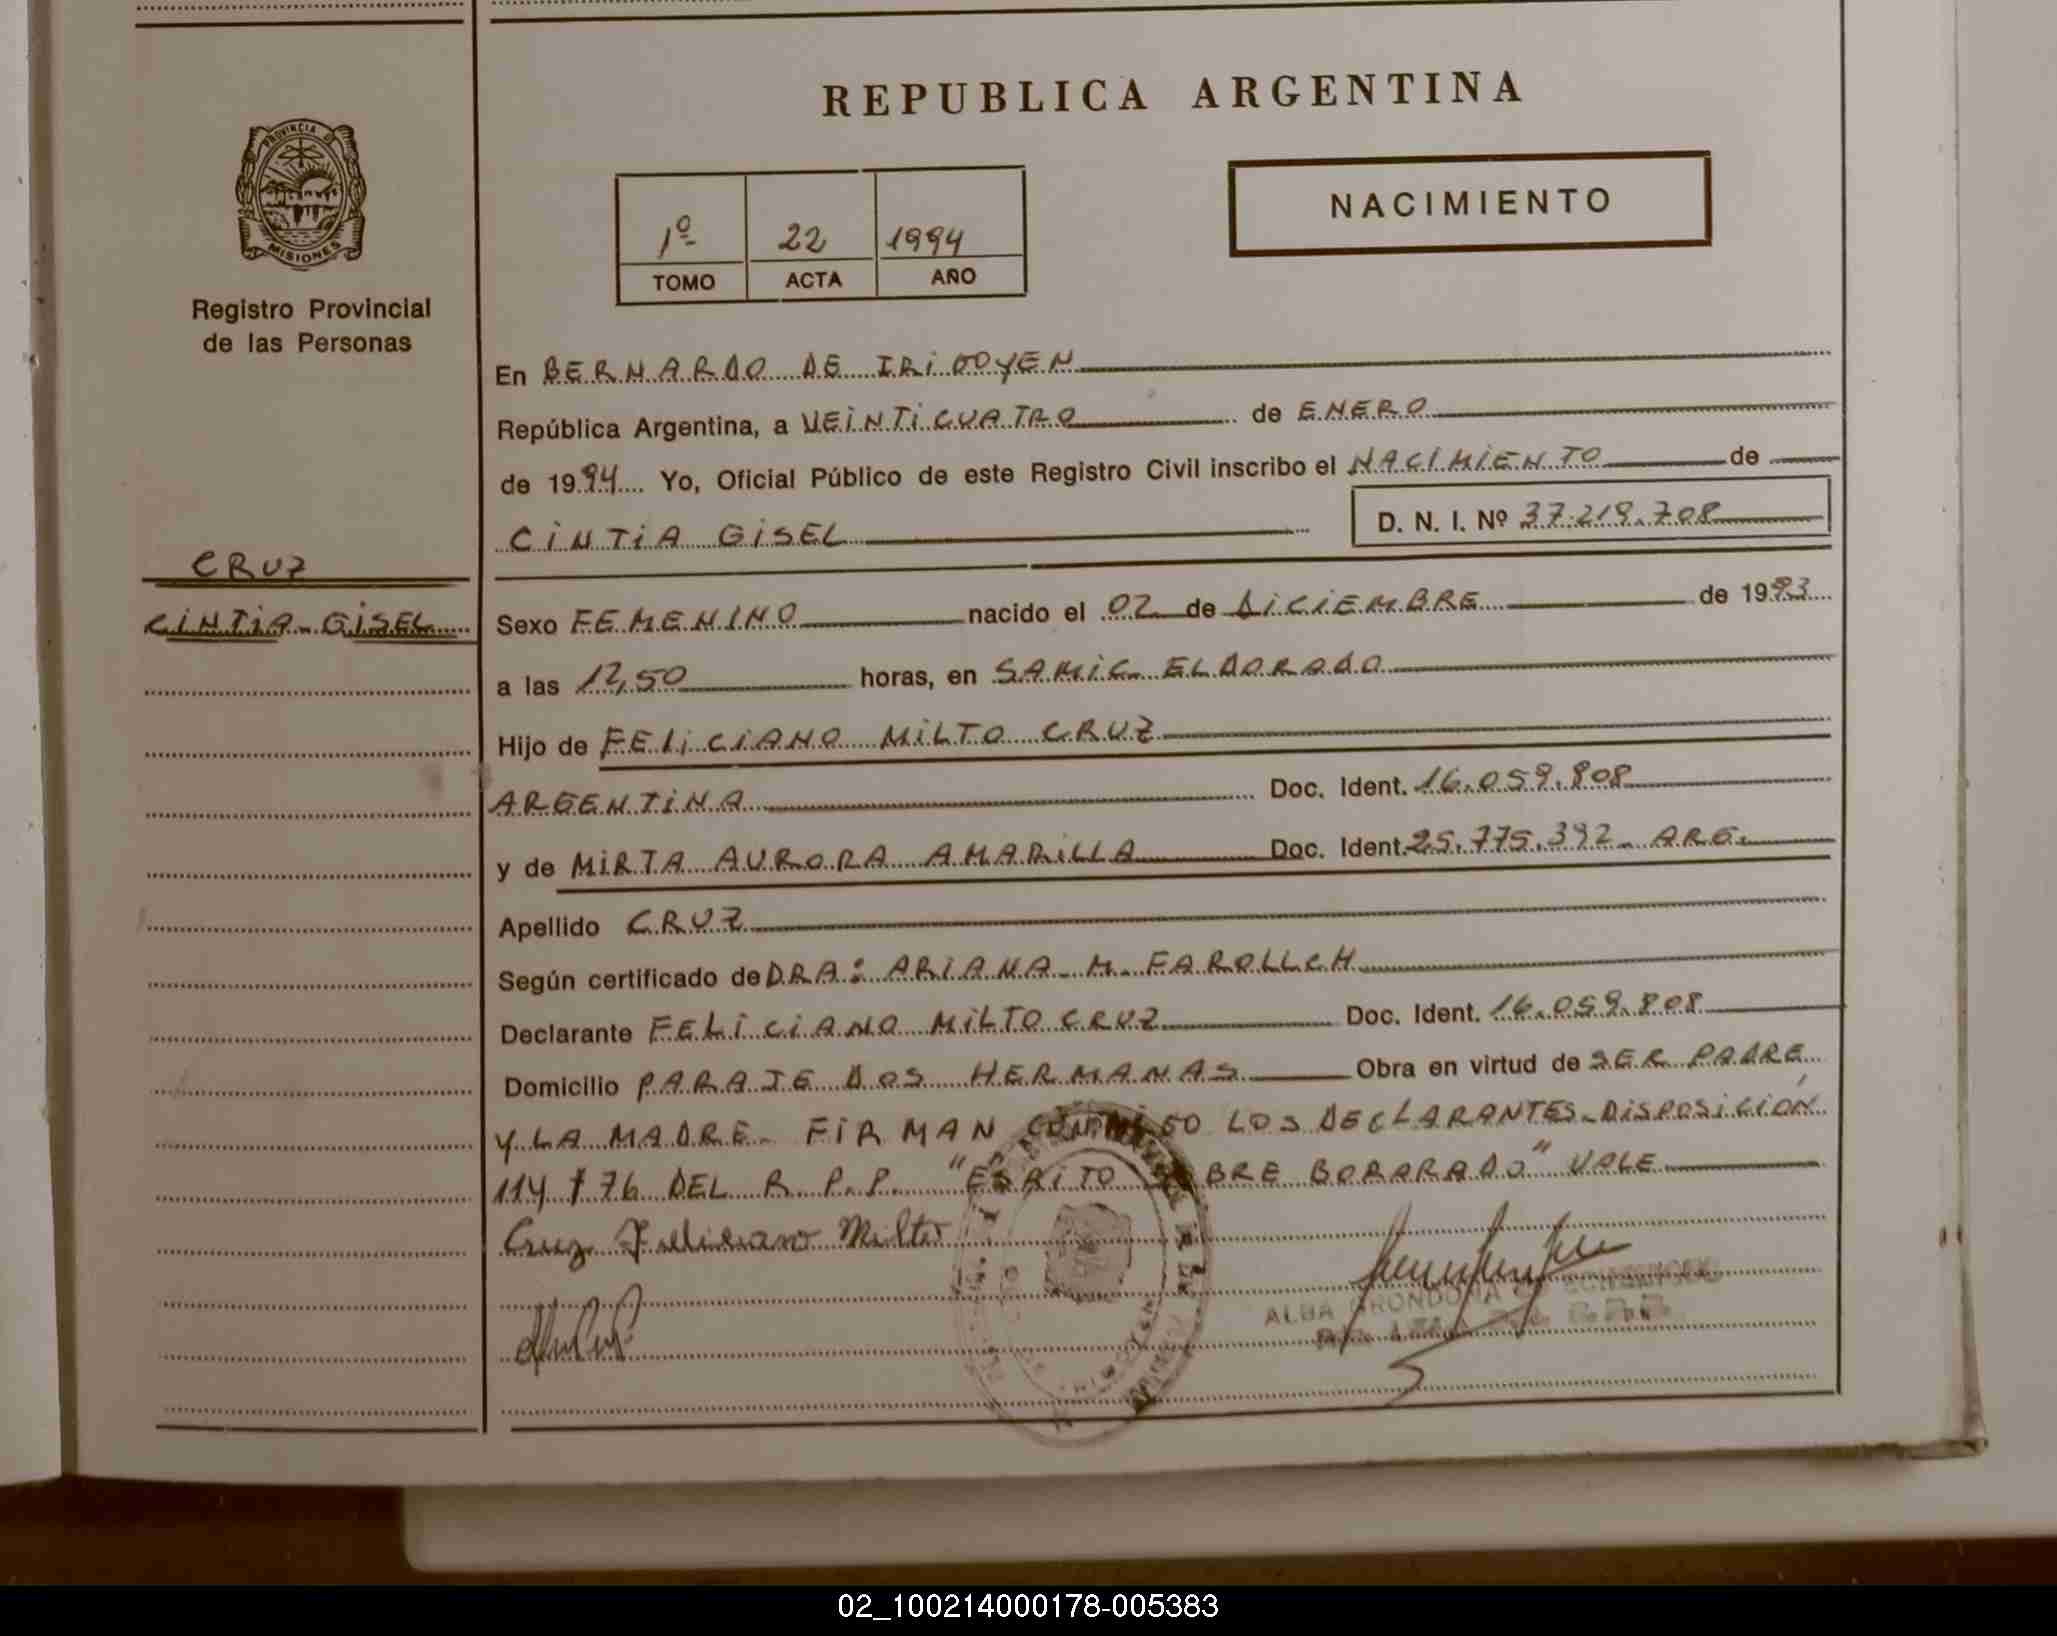 REPUBLICA ARGENTINA
PROVINCIA DE
MISIONES
Registro Provincial
de las Personas
1º 22 1994
TOMO ACTA AÑO
NACIMIENTO
En BERNARDO DE IRIGOYEN
República Argentina, a VEINTICUATRO de ENERO
de 1994 Yo, Oficial Público de este Registro Civil inscribo el NACIMIENTO de
CINTIA GISEL D. N. I. Nº 37.219.708
CRUZ
CINTIA-GISEL
Sexo FEMENINO nacido el 02 de DICIEMBRE de 1993
a las 12,50 horas, en SAMIC. ELDORADO
Hijo de FELICIANO MILTO CRUZ
ARGENTINA Doc. Ident. 16.059.808
y de MIRTA AURORA AMARILLA Doc. Ident. 25.775.392- ARG.
Apellido CRUZ
Según certificado de DRA: ARIANA - M. FAROLLCH
Declarante FELICIANO MILTO CRUZ Doc. Ident. 16.059.808
Domicilio PARAJE DOS HERMANAS Obra en virtud de SER PADRE
Y LA MADRE- FIRMAN CONMIGO LOS DECLARANTES-DISPOSICIÓN
114/76 DEL R.P.P. "ESRITO BRE BORARADO" VALE
Cruz Feliciano Milto
ALBA GRONDONA
02_100214000178-005383